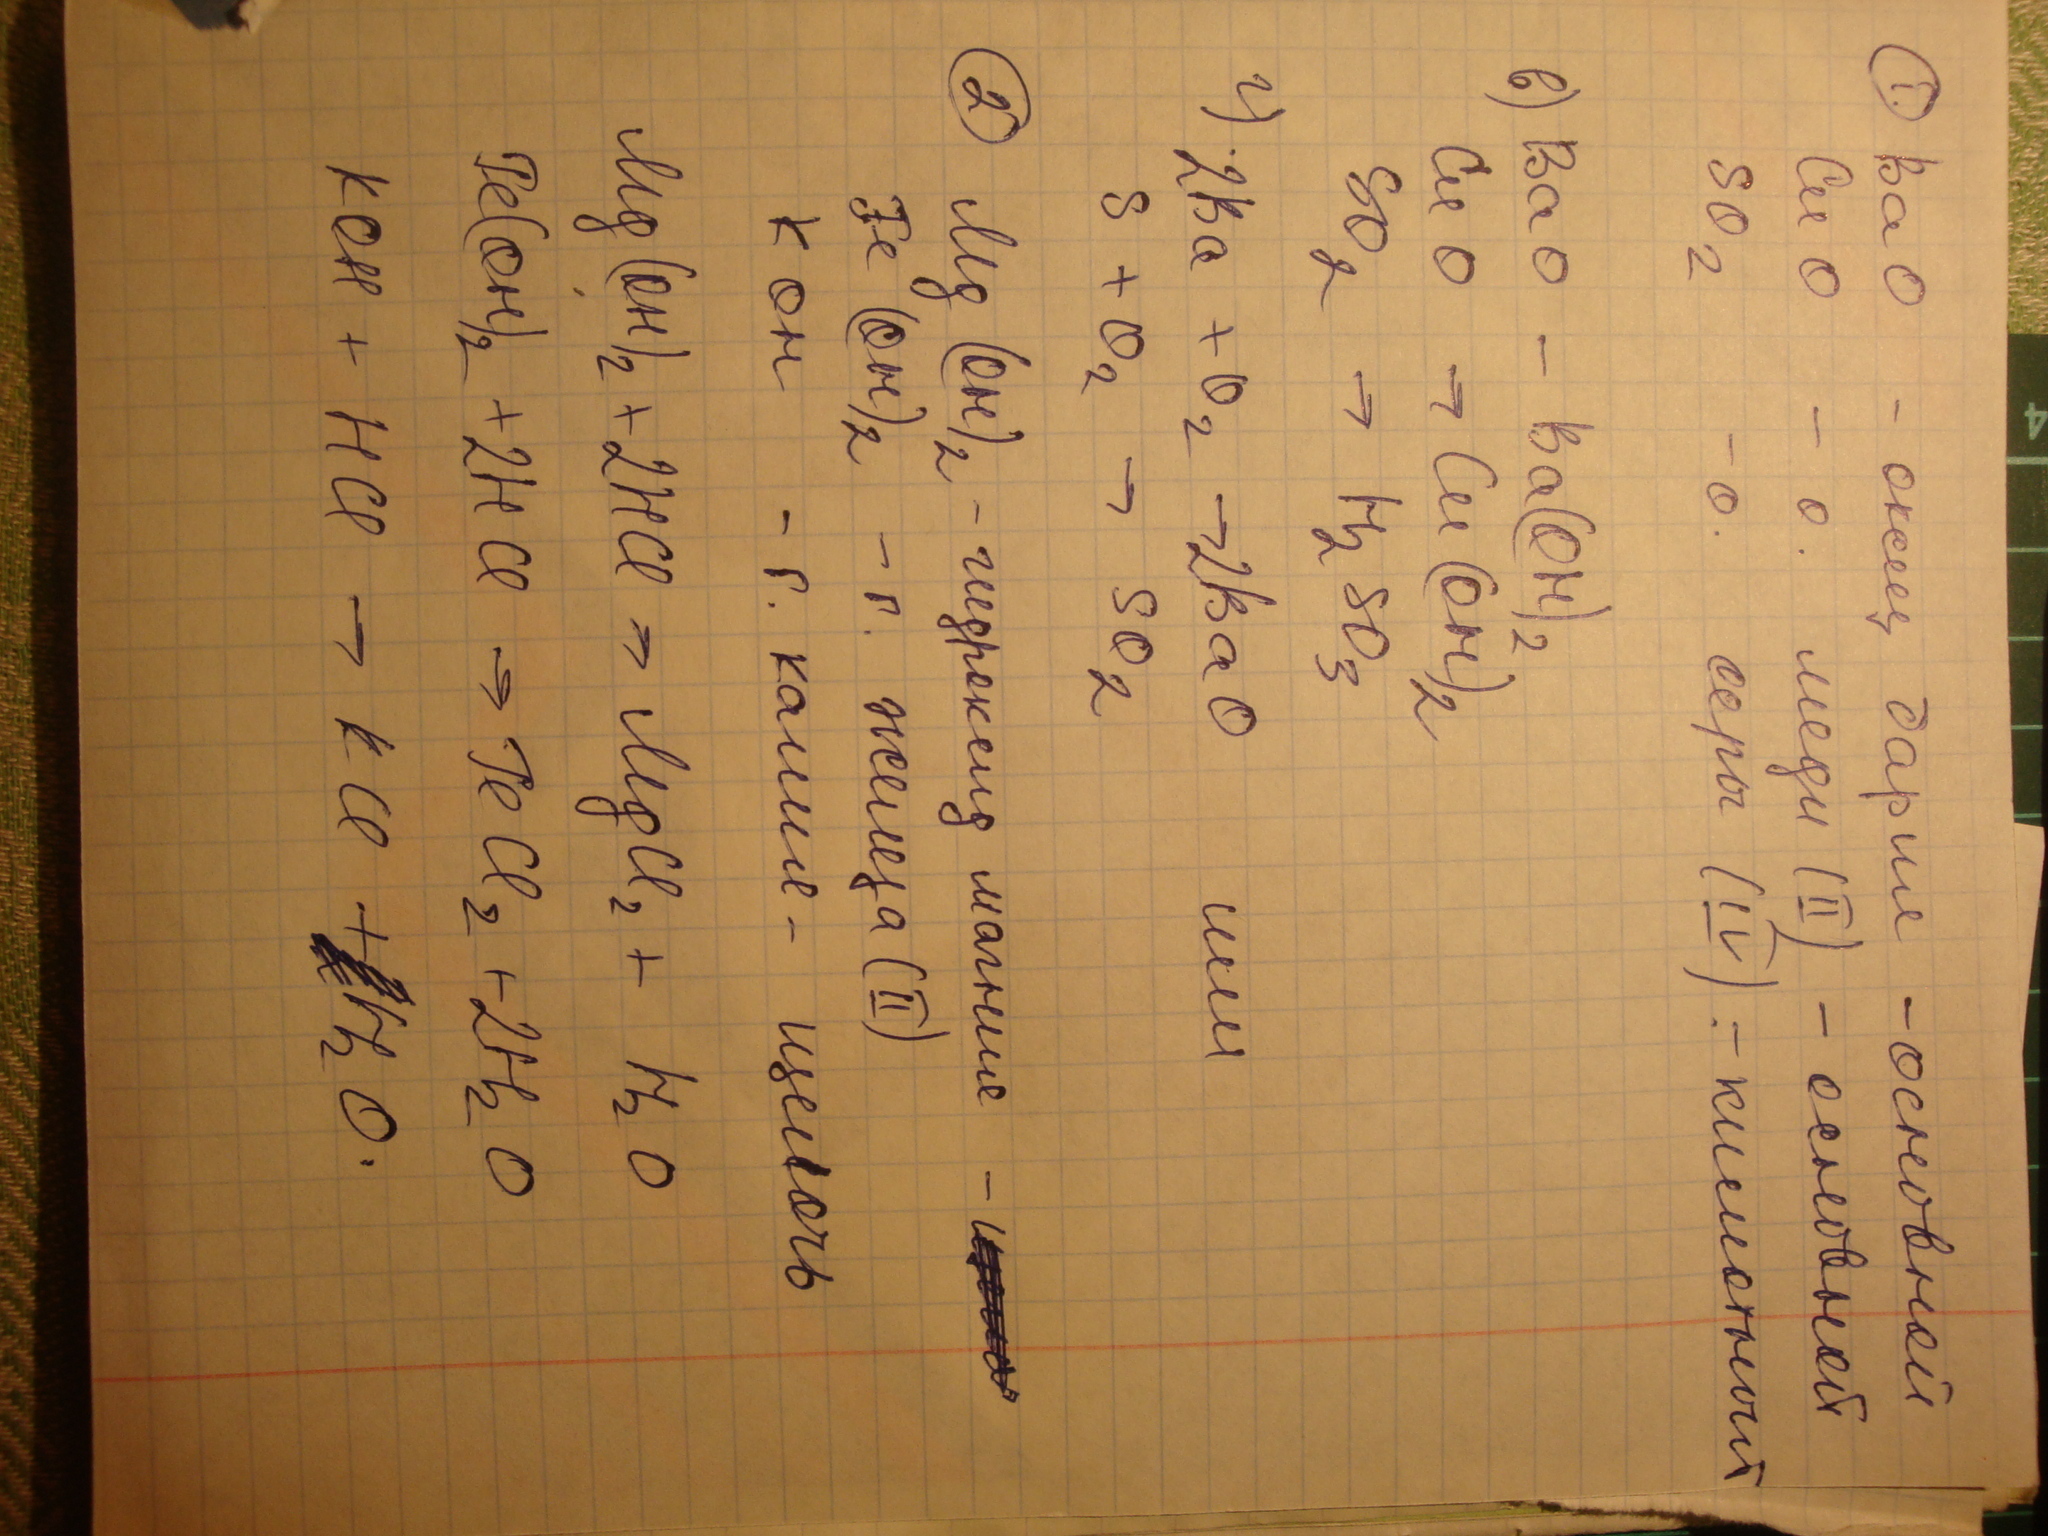 ① BaO - оксид бария - основной
CuO - о. меди (II) - основной
SO₂ - о. серы (IV) - кислотный
в) BaO - Ba(OH)₂
CuO → Cu(OH)₂
SO₂ → H₂SO₃
г) 2Ba + O₂ → 2BaO или
S + O₂ → SO₂
② Mg(OH)₂ - гидроксид магния -
Fe(OH)₂ - г. железа (II)
KOH - г. калия - щелочь
Mg(OH)₂ + 2HCl → MgCl₂ + H₂O
Fe(OH)₂ + 2HCl → FeCl₂ + 2H₂O
KOH + HCl → KCl + H₂O.
4